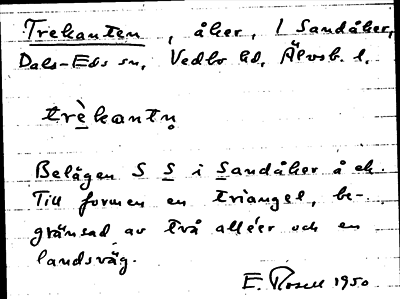 Trekanten, åker, 1 Sandåker,
Dals-Eds sn, Vedbo hd, Älvsb. l.
trèkantn̥
Belägen S S i Sandåker å ek.
Till formen en triangel, be-
gränsad av två alléer och en
landsväg.
E. Rosell 1950